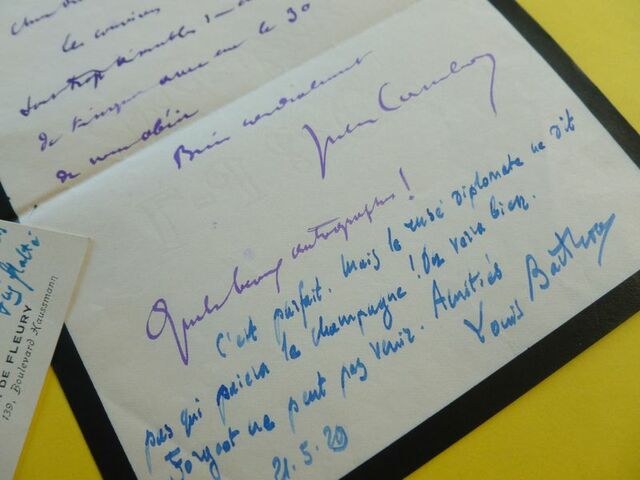 les convives
sont trop aimables
le 30
Bien cordialement
Jules Cambon
Quels beaux autographes !
C'est parfait. Mais le rusé diplomate ne dit
pas qui paiera le champagne ! On verra bien.
Forgeot ne peut pas venir. Amitiés
Louis Barthou
21.5.20
DE FLEURY
139, Boulevard Haussmann